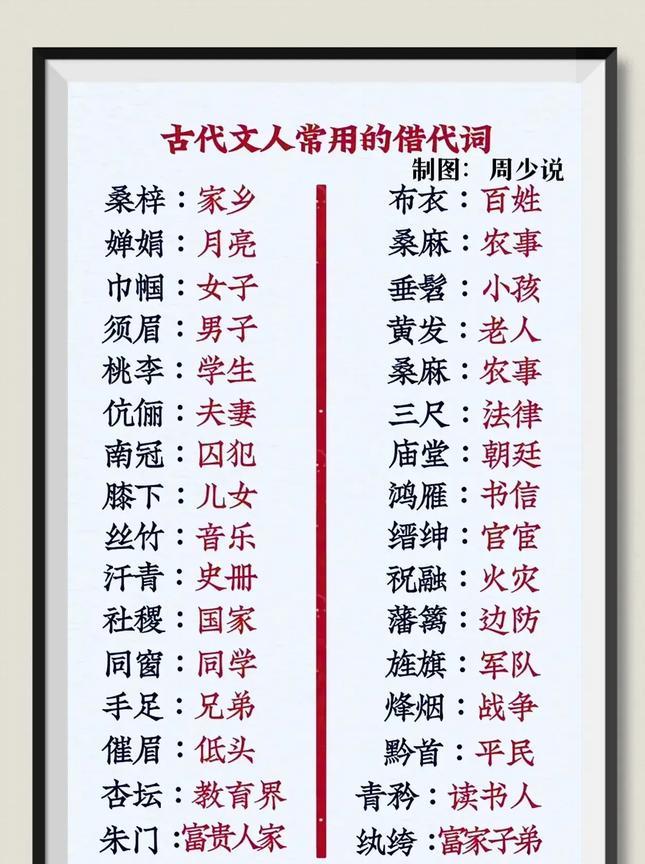 古代文人常用的借代词
制图： 周少说
桑梓：家乡
婵娟：月亮
巾帼：女子
须眉：男子
桃李：学生
伉俪：夫妻
南冠：囚犯
膝下：儿女
丝竹：音乐
汗青：史册
社稷：国家
同窗：同学
手足：兄弟
催眉：低头
杏坛：教育界
朱门：富贵人家
布衣：百姓
桑麻：农事
垂髫：小孩
黄发：老人
桑麻：农事
三尺：法律
庙堂：朝廷
鸿雁：书信
缙绅：官宦
祝融：火灾
藩篱：边防
旌旗：军队
烽烟：战争
黔首：平民
青矜：读书人
纨绔：富家子弟